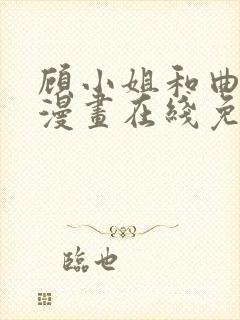 顾小姐和曲
漫畫在綫免
臨也